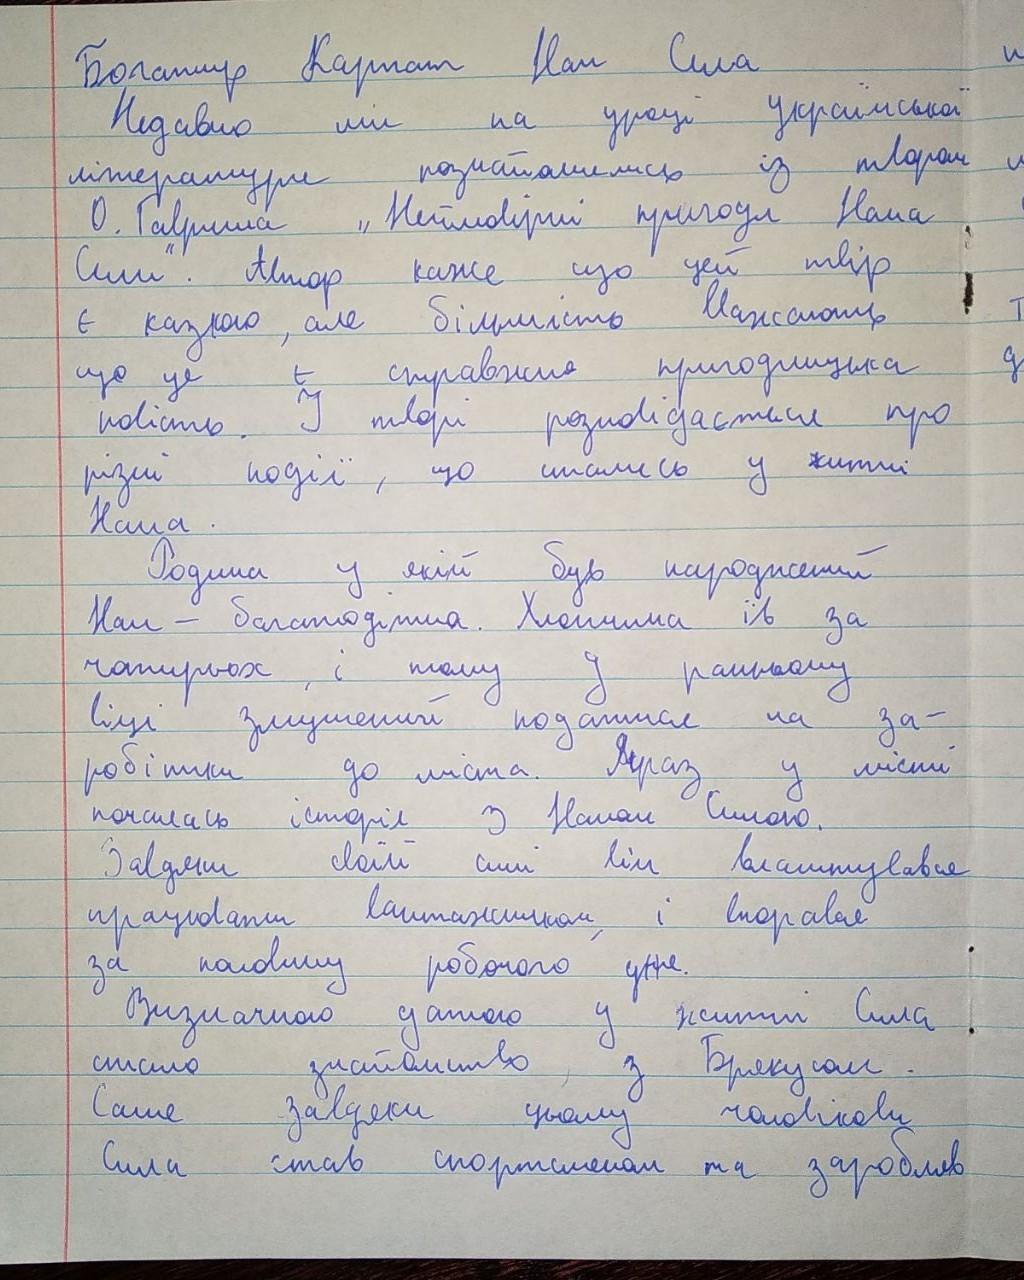 Богатир Карпат Нан Сила
Недавно ми на уроці Української
літератури познайомились із твором
О. Гавриша „Неймовірні пригоди Нана
Сили". Автор каже що цей твір
є казкою, але більшість вважають
що це є справжня пригодницька
повість. У творі розповідається про
різні події, що стались у житті
Нана.
Родина у якій був народжений
Нан – багатодітна. Хлопчина їв за
чотирьох, і тому у ранньому
віці змушений податися на за-
робітки до міста. Якраз у місті
почалась історія з Наном Силою.
Завдяки своїй силі він влаштувався
працювати вантажником, і впорався
за половину робочого дня.
Визначною датою у житті Сила
стало знайомство з Брякусом.
Саме завдяки цьому чоловікови
Сила став спортсменом та заробляв